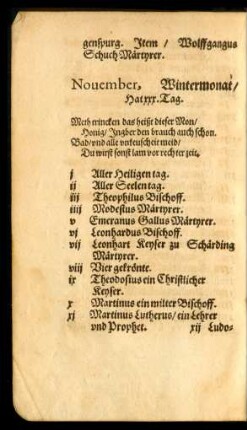 genspurg. Item / Wolffgangus
Schuch Märtyrer.
Nouember, Wintermonat/
Hat xxx. Tag.
Meth trincken das heißt dieser Mon/
Honig / Ingber den brauch auch schon.
Bad/vnd alle vnkeuscheit meid/
Du wirst sonst lam vor rechter zeit.
j Aller Heiligen tag.
ij Aller Seelen tag.
iij Theophilus Bischoff.
iiij Modestus Märtyrer.
v Emeranus Gallus Märtyrer.
vj Leonhardus Bischoff.
vij Leonhart Keyser zu Schärding
Märtyrer.
viij Vier gekrönte.
ix Theodosius ein Christlicher
Keyser.
x Martinus ein milter Bischoff.
xj Martinus Lutherus/ ein Lehrer
vnd Prophet. xij Ludo-